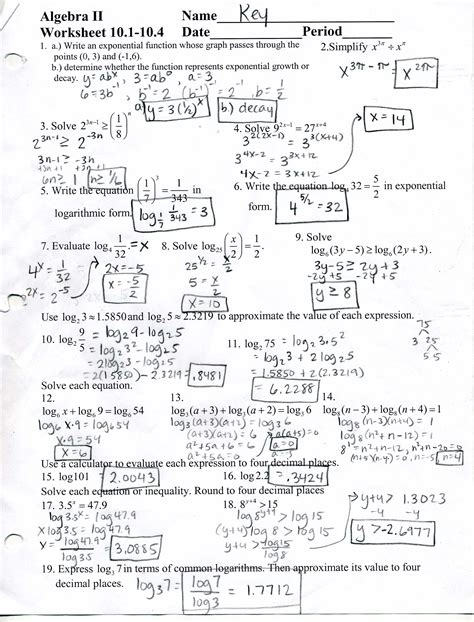 Algebra II Name Key
Worksheet 10.1-10.4 Date Period
1. a.) Write an exponential function whose graph passes through the points (0, 3) and (-1,6).
b.) determine whether the function represents exponential growth or decay.
y = abˣ, 3 = ab⁰, a = 3,
6 = 3b⁻¹ b⁻¹ = 2 b = 1/2
a.) y = 3(1/2)ˣ b.) decay
2.Simplify x^(3π) ÷ x^π
x^(3π - π) = x^(2π)
3. Solve 2^(3n-1) ≥ (1/8)^n
2^(3n-1) ≥ 2^(-3n)
3n-1 ≥ -3n
+3n +1 +3n +1
6n ≥ 1 n ≥ 1/6
4. Solve 9^(2x-1) = 27^(x+4)
3^(2(2x-1)) = 3^(3(x+4))
3^(4x-2) = 3^(3x+12)
4x-2 = 3x+12
x = 14
5. Write the equation (1/7)³ = 1/343 in logarithmic form.
log_(1/7) 1/343 = 3
6. Write the equation log₄ 32 = 5/2 in exponential form.
4^(5/2) = 32
7. Evaluate log₄ 1/32. = x
4ˣ = 1/32
2^(2x) = 2⁻⁵
2x = -5
x = -5/2
8. Solve log₂₅ (x/2) = 1/2.
25^(1/2) = x/2
5 = x/2
x = 10
9. Solve
log₆(3y - 5) ≥ log₆(2y + 3).
3y-5 ≥ 2y+3
-2y +5 -2y +5
y ≥ 8
Use log₂ 3 ≈ 1.5850 and log₂ 5 ≈ 2.3219 to approximate the value of each expression.
10. log₂ 9/5 = log₂9 - log₂5
= log₂3² - log₂5
= 2log₂3 - log₂5
= 2(1.5850) - 2.3219 = .8481
11. log₂ 75 = log₂ 3·5²
= log₂3 + 2log₂5
= 1.5850 + 2(2.3219)
= 6.2288
75
3 25
5 5
Solve each equation.
12.
log₆ x + log₆ 9 = log₆ 54
log₆ x·9 = log₆54
x·9 = 54
x = 6
13.
log₃(a + 3) + log₃(a + 2) = log₃ 6
log₃(a+3)(a+2) = log₃6
(a+3)(a+2) = 6
a²+5a+6 = 6
a²+5a = 0
a(a+5) = 0
a=0
14.
log₈(n - 3) + log₈(n + 4) = 1
log₈(n-3)(n+4) = 1
log₈(n²+n-12) = 1
8¹ = n²+n-12, n²+n-20=0
(n+5)(n-4)=0, n=-5 n=4
Use a calculator to evaluate each expression to four decimal places.
15. log101 = 2.0043
16. log2.2 = .3424
Solve each equation or inequality. Round to four decimal places
17. 3.5ˣ = 47.9
log 3.5ˣ = log 47.9
x log 3.5 = log 47.9
x = log 47.9/log 3.5 = 3.0885
18. 8^(y+4) > 15
log 8^(y+4) > log 15
(y+4) log 8 > log 15
y+4 > log15/log8
y+4 > 1.3023
-4 -4
y > -2.6977
19. Express log₃ 7 in terms of common logarithms. Then approximate its value to four decimal places.
log₃7 = log7/log3 = 1.7712